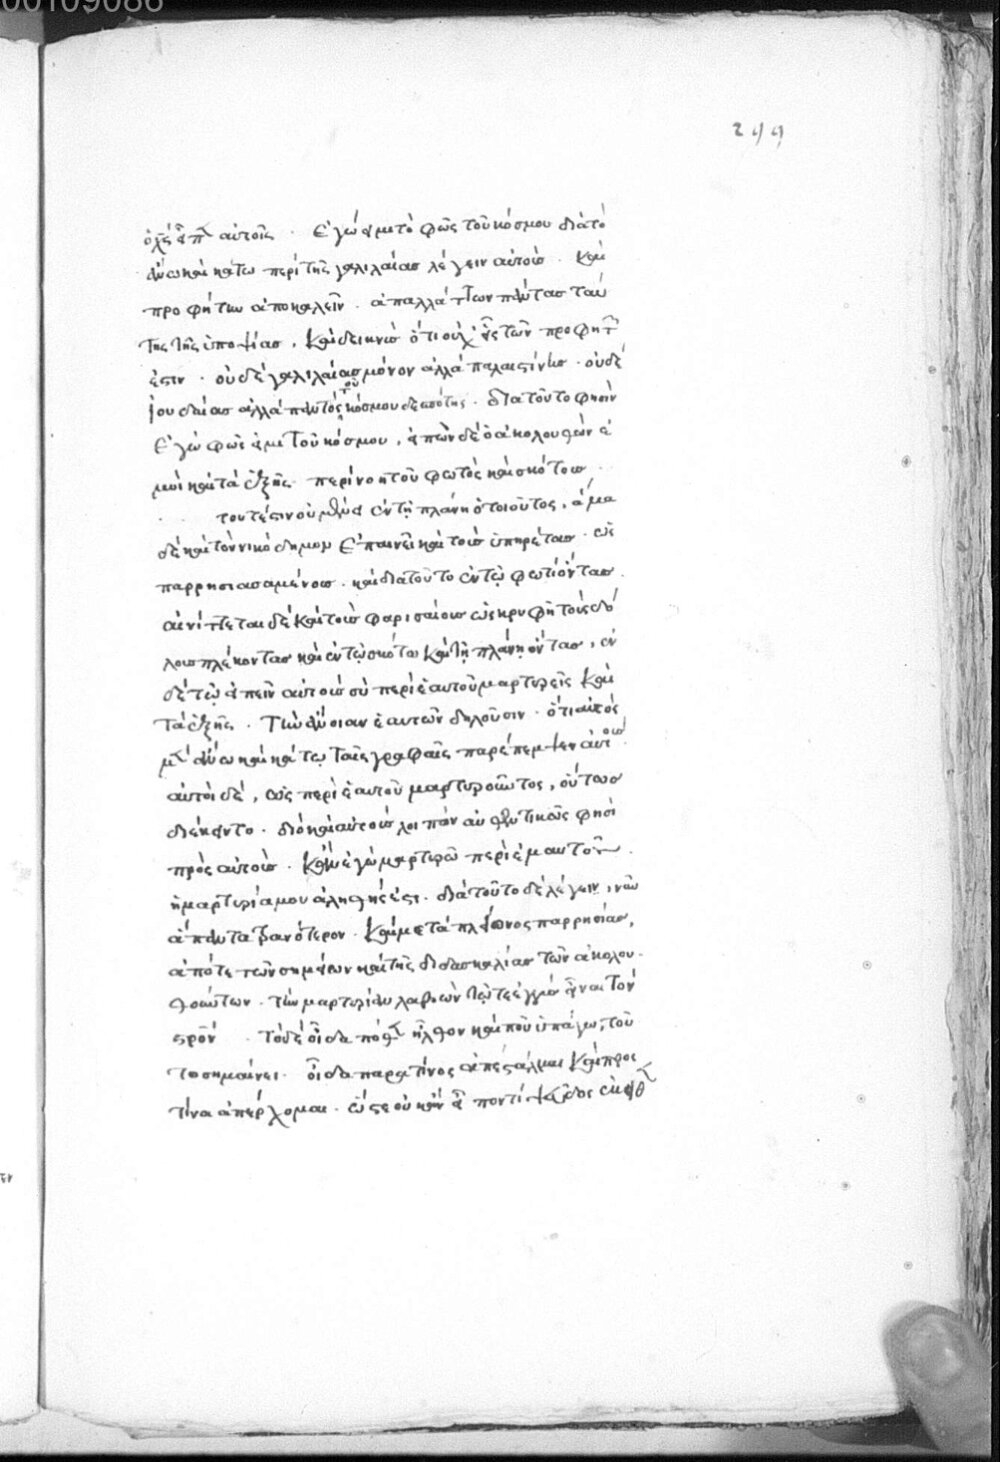 00109086
299
ὁ χς εἶπεν αὐτοῖς . Ἐγώ εἰμι τὸ φῶς τοῦ κόσμου διὰ τὸ
ἄνω καὶ κάτω περὶ τῆς γαλιλαίας λέγειν αὐτοὺς . καὶ
προφήτην ἀποκαλεῖν . ἀπαλλάττων πάντας ταύ
της τῆς ὑποψίας , καὶ δεικνὺς ὅτι οὐχ εἷς τῶν προφητῶν
ἐστιν . οὐδὲ γαλιλαίας μόνον ἀλλὰ παλαιστίνης . οὐδὲ
ἰουδαίας ἀλλὰ παντὸς τοῦ κόσμου δεσπότης . διὰ τοῦτο φησὶν
Ἐγὼ φῶς εἰμι τοῦ κόσμου , εἰπὼν δὲ ὁ ἀκολουθῶν ἐ
μοὶ καὶ τὰ ἑξῆς περὶ νοητοῦ φωτὸς καὶ σκότους .
τουτέστιν οὐ μένει ἐν τῇ πλάνῃ ὁ τοιοῦτος , ἅμα
δὲ καὶ τὸν νικόδημον ἐπαινεῖ καὶ τοὺς ὑπηρέτας . ὡς
παρρησιασαμένους . καὶ διὰ τοῦτο ἐν τῷ φωτὶ ὄντας .
αἰνίττεται δὲ καὶ τοὺς φαρισαίους ὡς κρυφῇ τοὺς δό
λους πλέκοντας καὶ ἐν τῷ σκότω καὶ τῇ πλάνῃ ὄντας , ἐν
δὲ τῷ εἰπεῖν αὐτοὺς σὺ περὶ ἑαυτοῦ μαρτυρεῖς καὶ
τὰ ἑξῆς . τὴν ἄνοιαν ἑαυτῶν δηλοῦσιν . ὅτι αὐτὸς
μὲν ἄνω καὶ κάτω ταῖς γραφαῖς παρέπεμψεν αὐτοὺς
αὐτοὶ δὲ , ὡς περὶ ἑαυτοῦ μαρτυροῦντος , οὕτως
διέκειντο . διὸ καὶ αὐτοῖς λοιπὸν αὐθεντικῶς φησὶ
πρὸς αὐτοὺς . Κἂν ἐγὼ μαρτυρῶ περὶ ἐμαυτοῦ .
ἡ μαρτυρία μου ἀληθής ἐστι . διὰ τοῦτο δὲ λέγειν , νῦν
ἅπαντα φανότερον . καὶ μετὰ πλείονος παρρησίας ,
ἅποτε τῶν σημείων καὶ τῆς διδασκαλίας τῶν ἀκολου
θούντων . τὴν μαρτυρίαν λαβὼν
τὸ δὲ οἶδα πόθεν ἦλθον καὶ ποῦ ὑπάγω , τοῦ
το σημαίνει . οἶδα παρὰ τίνος ἀπέσταλμαι καὶ πρὸς
τίνα ἀπέρχομαι . ὥστε οὐκ ἂν εἶπόν τι ψεῦδος